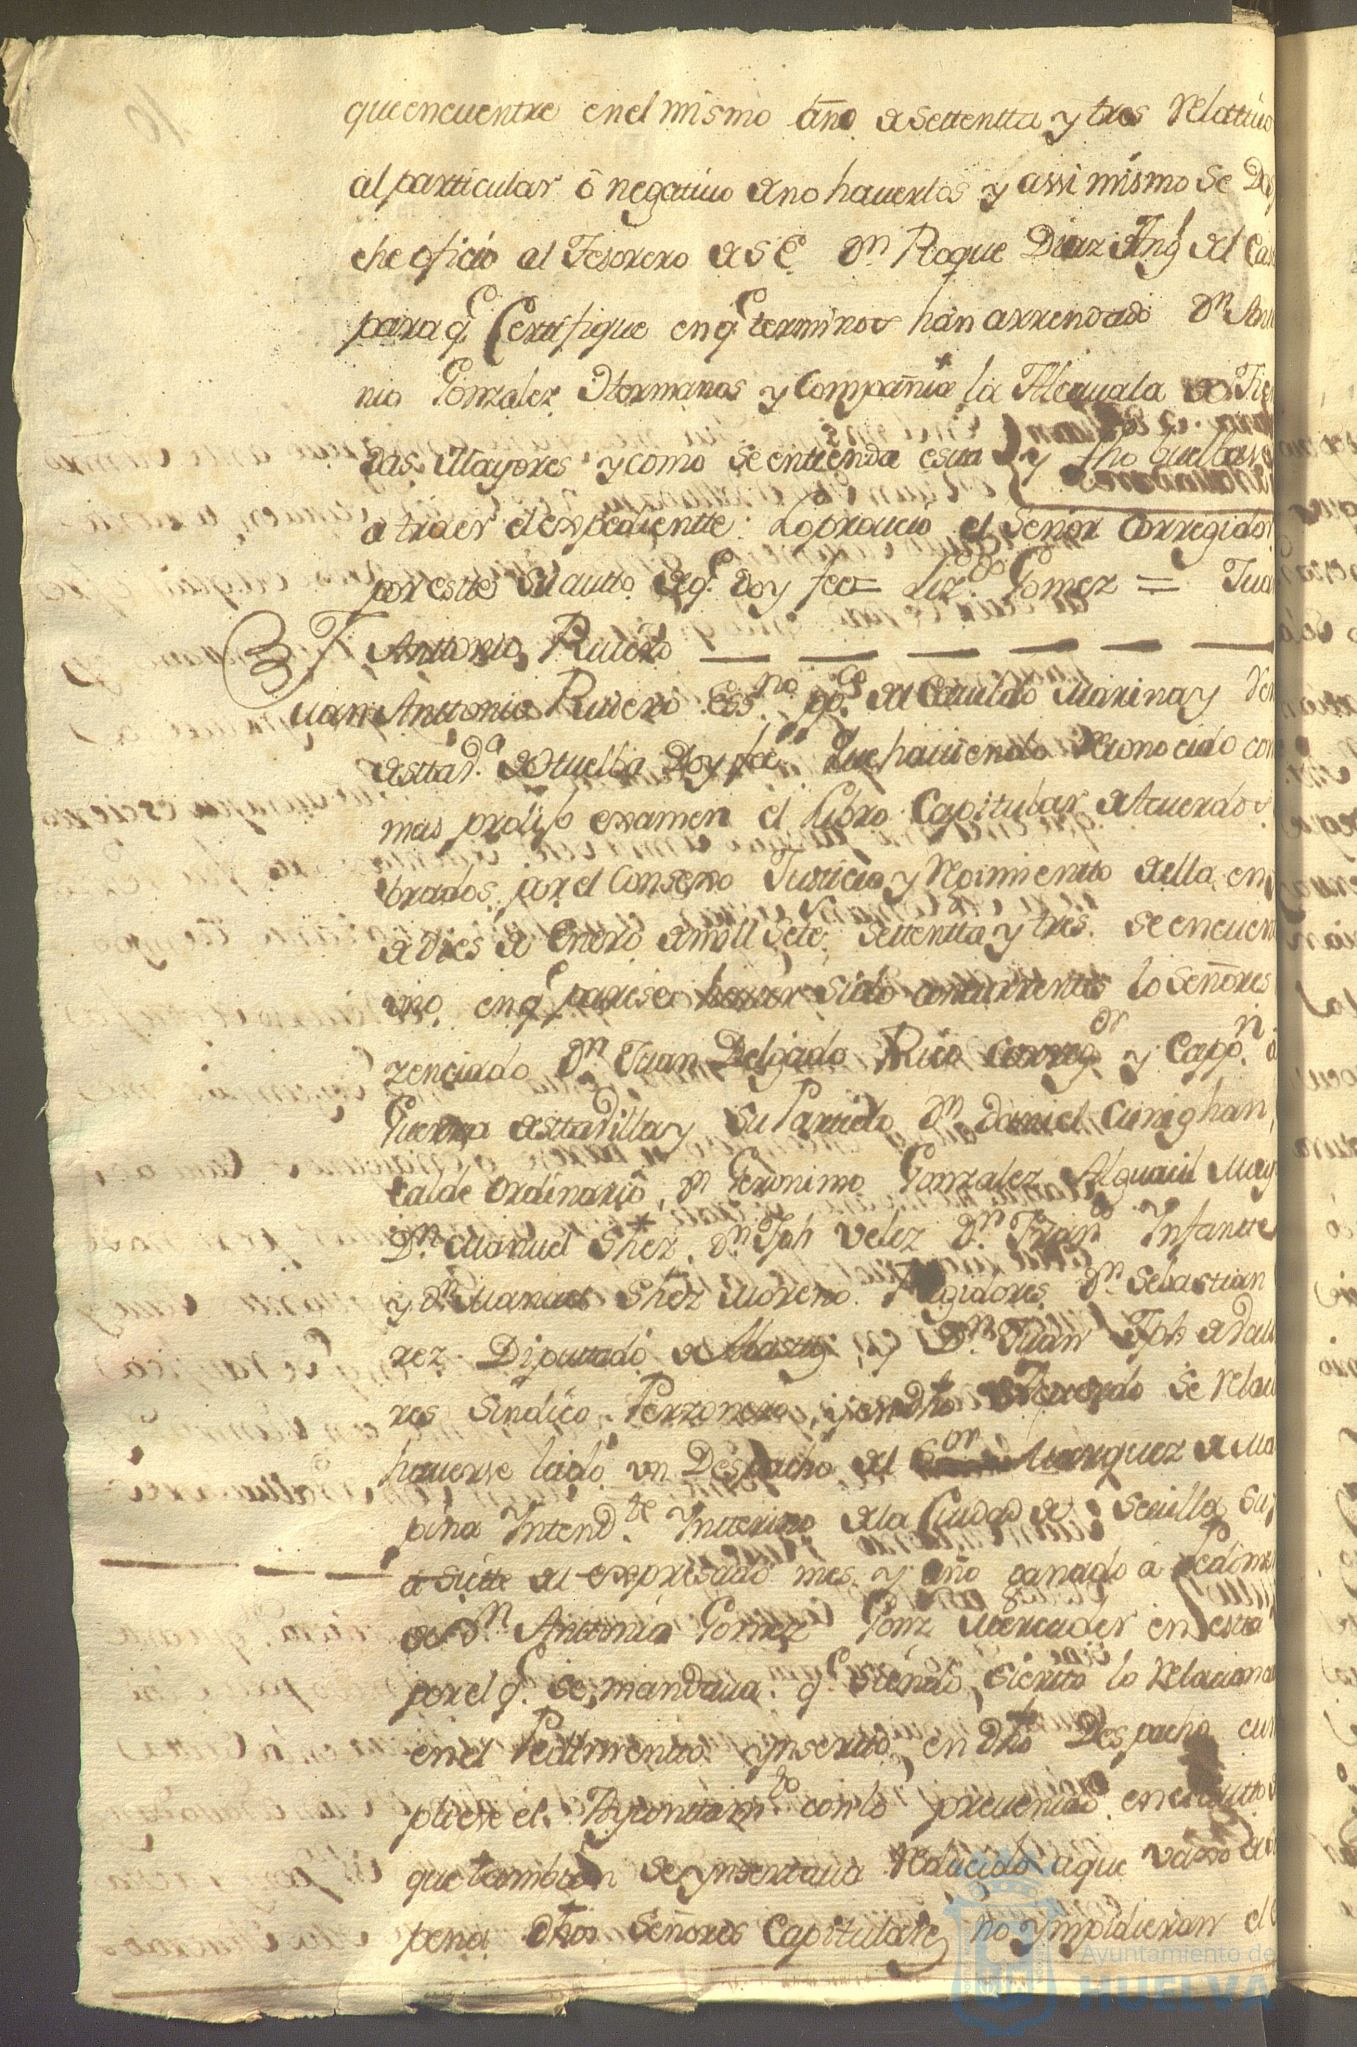 que encuentre en el mismo año de Settentta y tres Relativo
al particular ô negativo de no haverlos y assi mismo se Des
che oficio al Tesorero de S E. Dn Roque Diaz del Ca
para q.e Certifique en q.e terminos han arrendado Dn Anto
nio Gonzalez Hermanos y Compañia la Alcavala de Tien
das Mayores y como se entienda esta y fho buelbase
a traer el expedientte: Lo proveio el Señor Corregidor
por estte su autto de q.e doy fee = Liz.do Gomez = Juan
Anttonio Rivero
Juan Anttonio Rivero Ess.no pp.co del Cavildo Marina y Ren
estta de Huelba doy fee Que haviendo Reconocido con
mas prolijo examen el Libro Capitular de Acuerdos
brados por el Consexo Justicia y Reximientto de ella en
de dies de Enero de mill Sete.s Settentta y tres. se encuen
uno en q.e parese haver sido concurrentes lo Señores
zenciado Dn Juan Delgado Rico Correg.or y Capp.n a
Guerra de estta Villa y su Partido Dn Daniel Cunighan,
calde Ordinario, Dn Geronimo Gonzalez Alguacil May
Dn Manuel Shez. Dn Jph Velez Dn Fran.co Infantte
y Dn Manuel Shez Moreno Regidores, Dn Sebastian
rez Diputtado de Abasttos, y Dn Juan Jph de
res Sindico Perzonero, y en dho Acuerdo se Relac
haverse leido un Despacho del Sor Marquez de Ma
pina Intend.te Intterino de la Ciudad de Sevilla su
a siette del expresado mes y año ganado â Pedimen
de Dn Anttonio Gomez Gonz Mercader en estta
por el q.e se mandava q.e siendo sierto lo Relaciona
en el Pedimentto ynsertto en dho Despacho cum
pliese el Ayuntam.to con lo prevenido en el autto
que tambien se ynsertava Reducido a que vajo de
pena dhos Señores Capitulares no ympidieran el
Ayuntamiento de
HUELVA